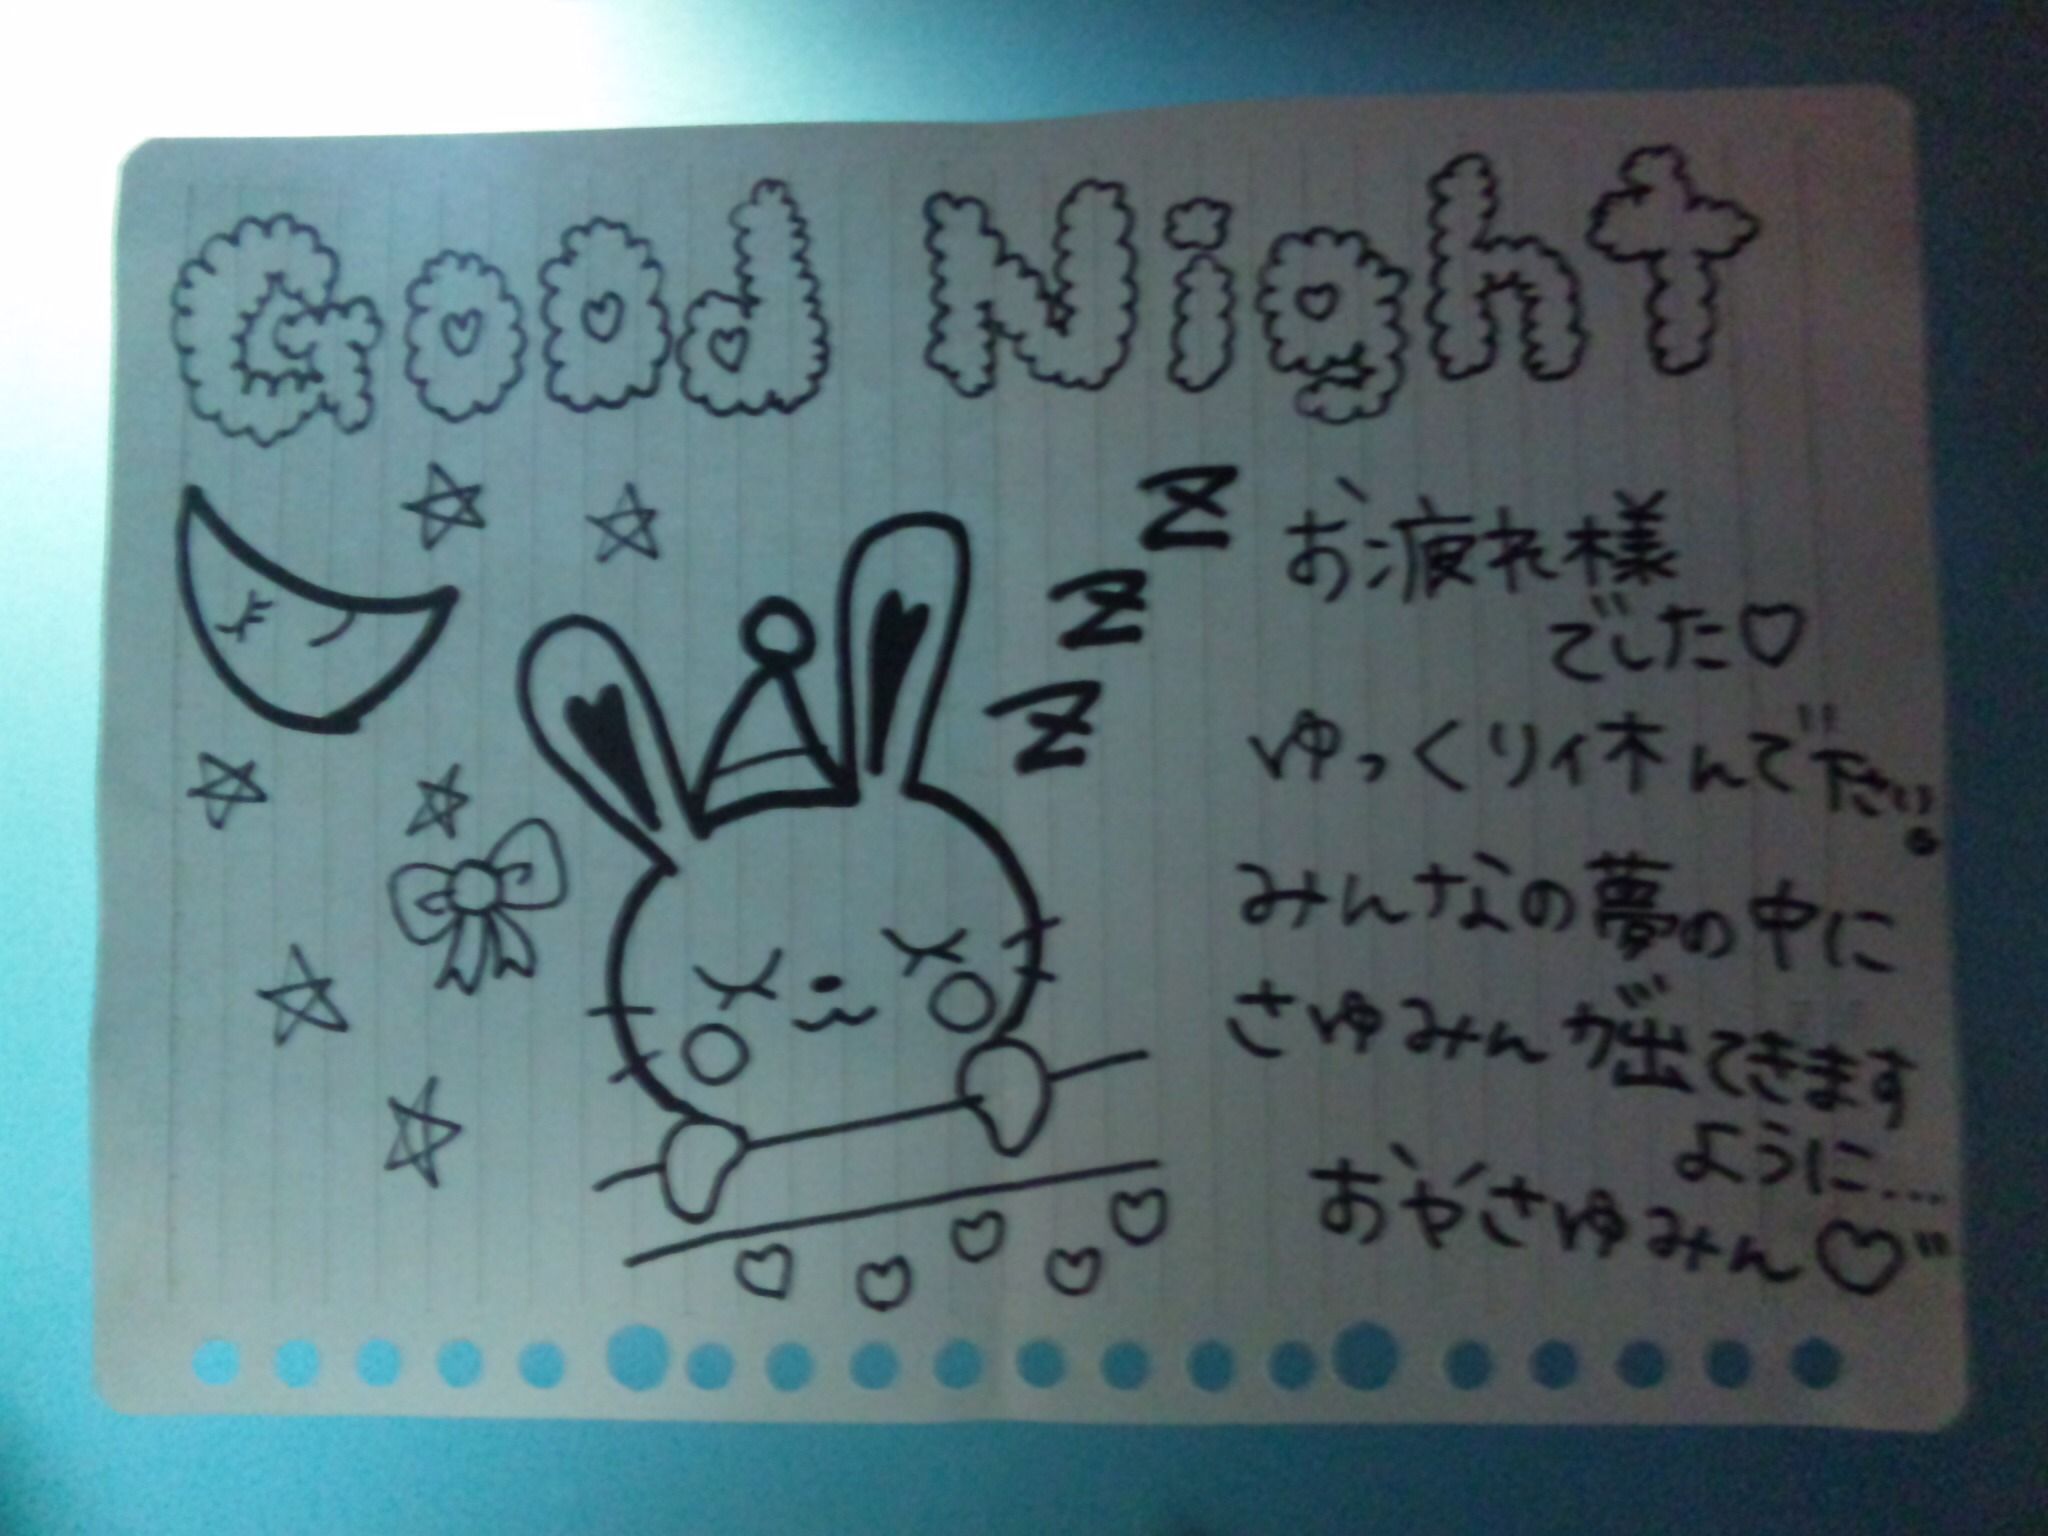 Good Night
Z
Z
Z
お疲れ様
でした♡
ゆっくり休んで下さい。
みんなの夢の中に
さゆみんが出てきます
ように...
おやさゆみん♡